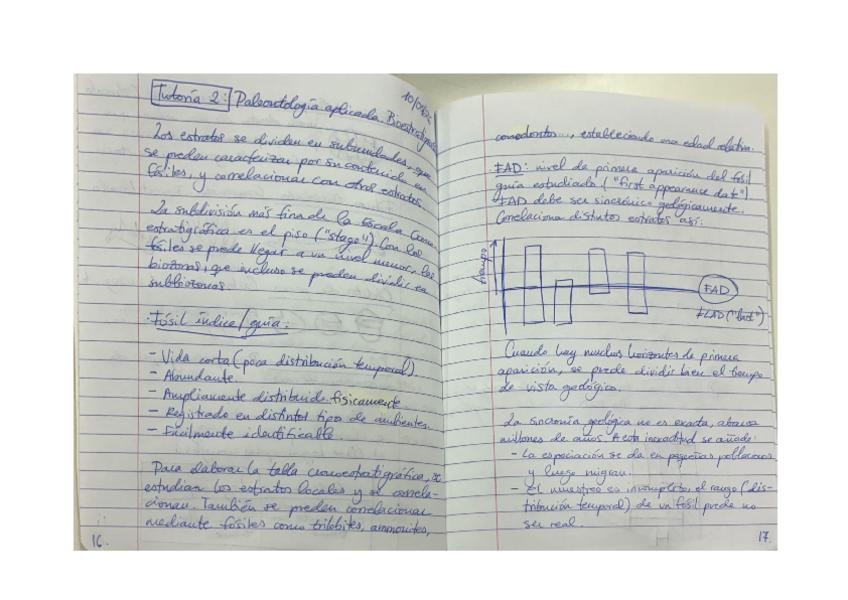 Tutoría 2: Paleontología aplicada. Bioestratigrafía
Los estratos se dividen en subunidades, que
se pueden caracterizar por su contenido en
fósiles, y correlacionar con otros estratos.
La subdivisión más fina de la Escala Crono-
estratigráfica es el piso ("stage"). Con los
fósiles se puede llegar a un nivel menor, las
biozonas, que incluso se pueden dividir en
subbiozonas
Fósil índice/guía:
- Vida corta (poca distribución temporal).
- Abundante.
- Ampliamente distribuido físicamente
- Registrado en distintos tipo de ambientes.
- Fácilmente identificable
Para elaborar la tabla cronoestratigráfica, se
estudian los estratos locales y se correla-
cionan. También se pueden correlacionar
mediante fósiles como trilobites, ammonites,
16.
conodontos..., estableciendo una edad relativa.
FAD: nivel de primera aparición del fósil
guía estudiado ("first appearance date")
FAD debe ser sincrónico geológicamente.
Correlaciona distintos estratos así:
tiempo
FAD
≠LAD ("last")
Cuando hay muchos horizontes de primera
aparición, se puede dividir bien el tiempo
de vista geológico.
La sincronía geológica no es exacta, abarca
millones de años. A esta inexactitud se añade:
- La especiación se da en pequeñas poblaciones
y luego migran.
- El muestreo es incompleto, el rango (dis-
tribución temporal) de un fósil puede no
ser real.
17.